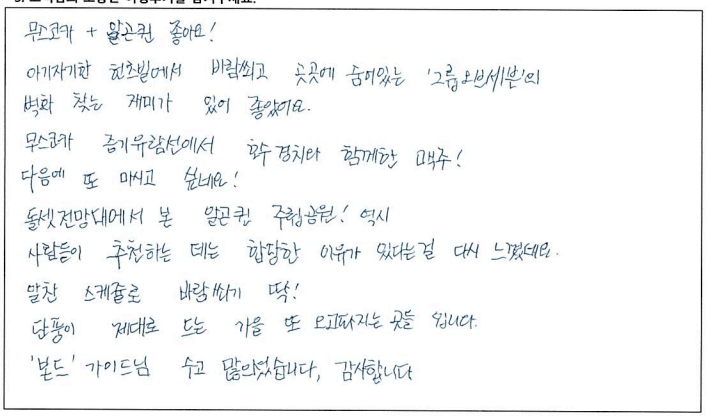 무스코카 + 알곤퀸 좋아요!
아기자기한 헌츠빌에서 바람쐬고 곳곳에 숨어있는 '그룹오브세븐'의
벽화 찾는 재미가 있어 좋았어요.
무스코카 증기유람선에서 호수경치와 함께한 맥주!
다음에 또 마시고 싶네요!
돌셋전망대에서 본 알곤퀸 주립공원! 역시
사람들이 추천하는 데는 합당한 이유가 있다는걸 다시 느꼈네요.
알찬 스케쥴로 바람쐬기 딱!
단풍이 제대로 드는 가을 또 오고파지는 곳들 입니다.
'본드' 가이드님 수고 많으셨습니다, 감사합니다